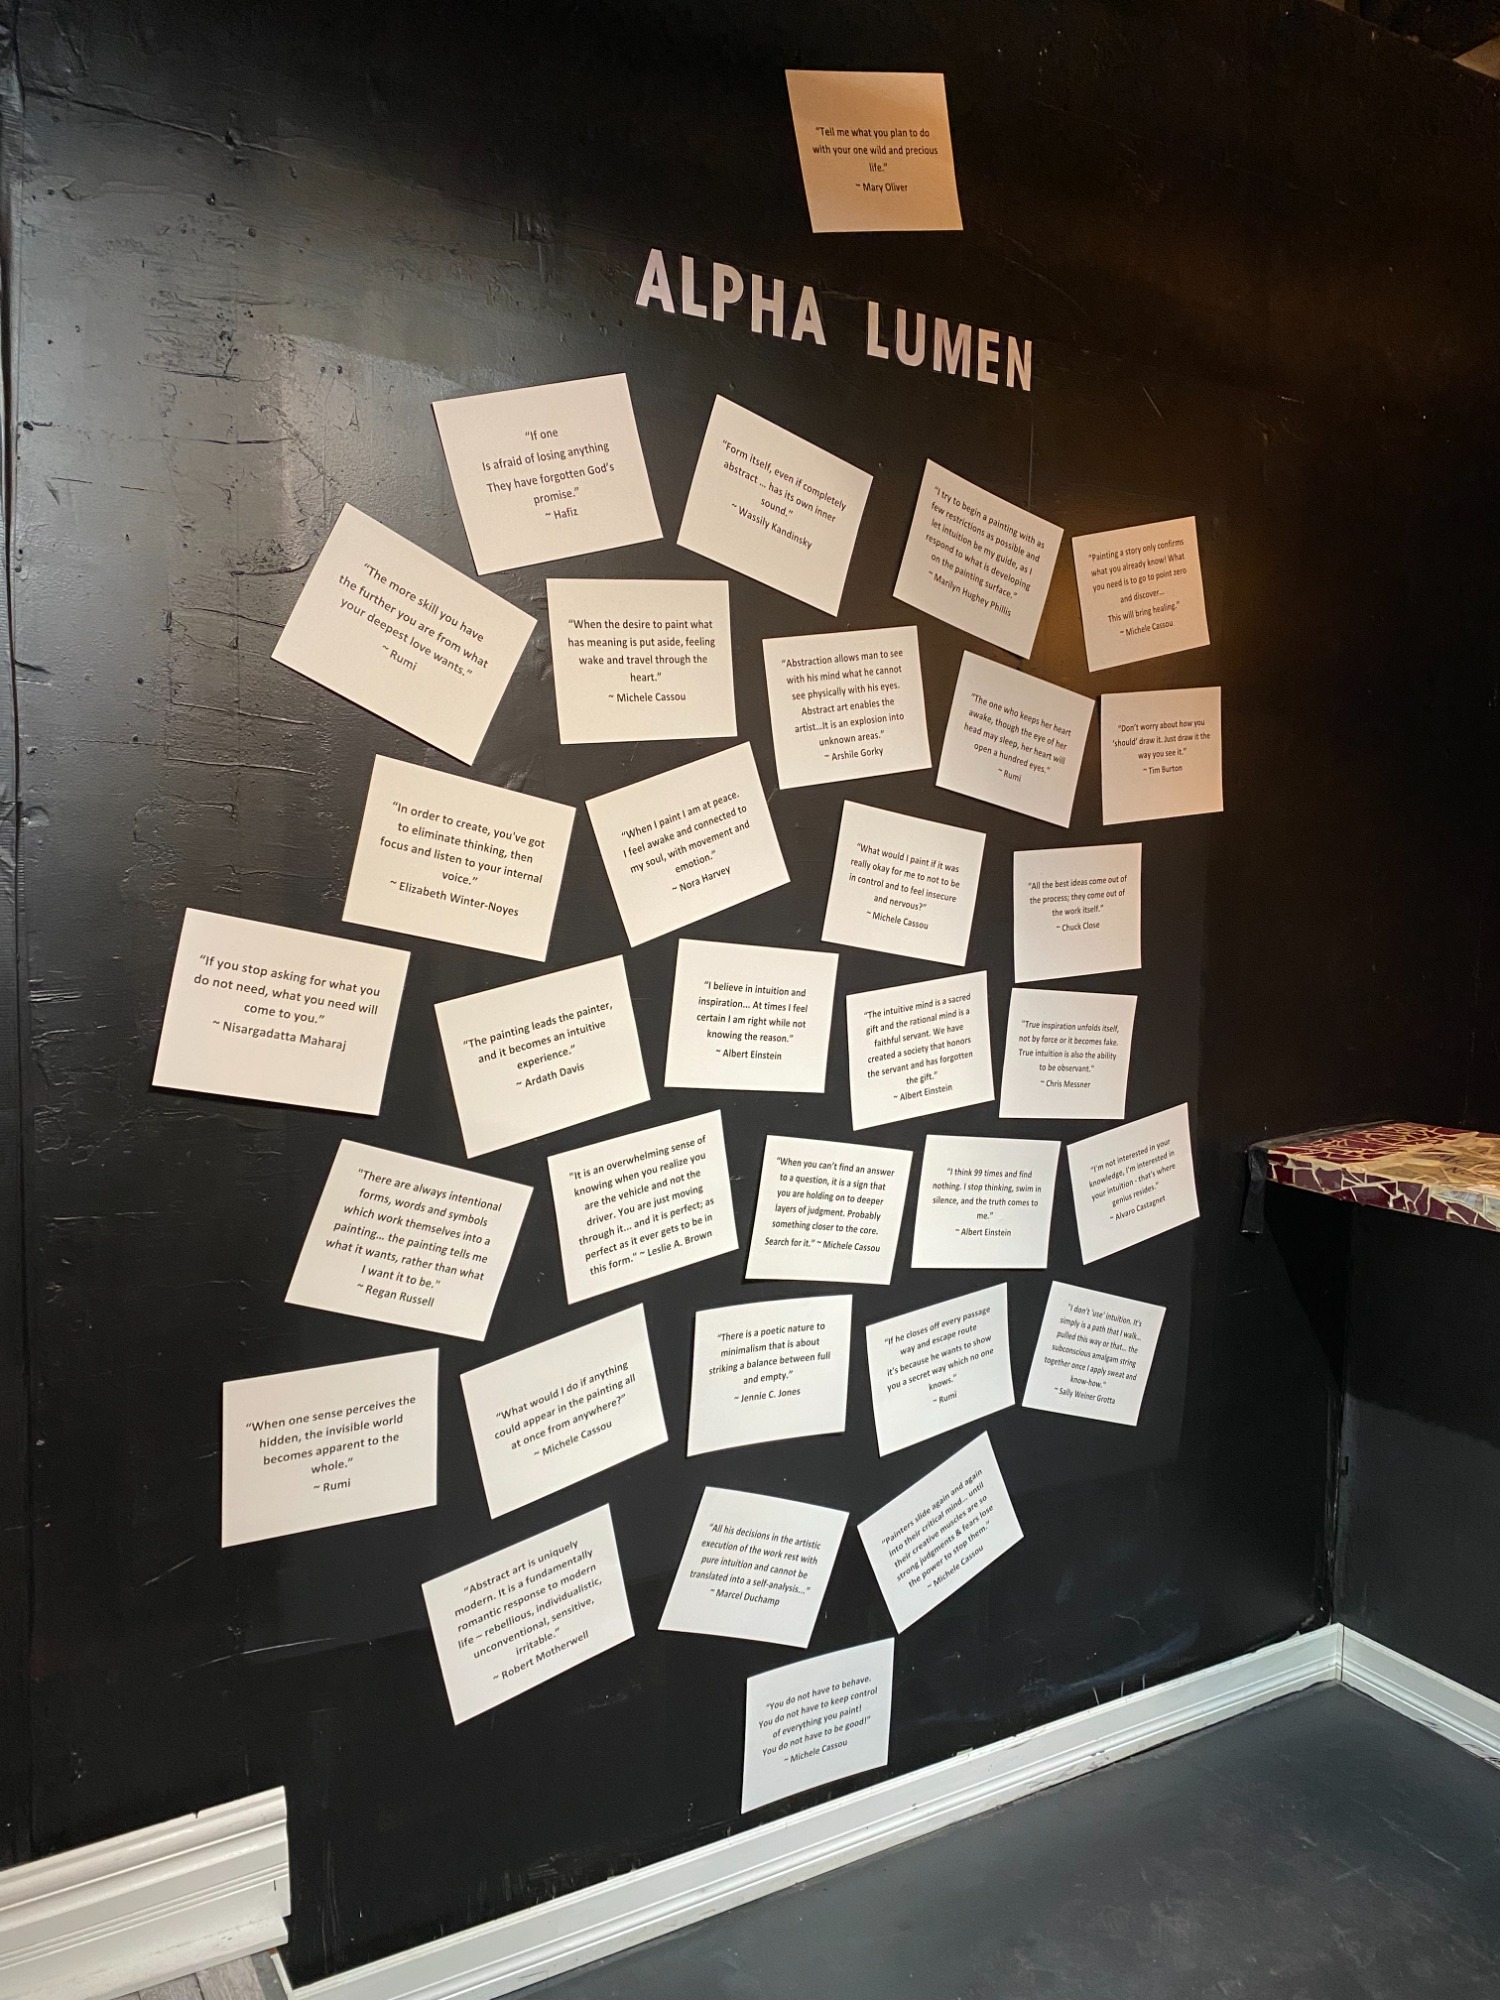 "Tell me what you plan to do
with your one wild and precious
life."
~ Mary Oliver
ALPHA LUMEN
"If one
Is afraid of losing anything
They have forgotten God's
promise."
~ Hafiz
"Form itself, even if completely
abstract ... has its own inner
sound."
~ Wassily Kandinsky
"I try to begin a painting with as
few restrictions as possible and
let intuition be my guide, as I
respond to what is developing
on the painting surface."
~ Marilyn Hughey Phillis
"Painting a story only confirms
what you already know! What
you need is to go to point zero
and discover...
This will bring healing."
~ Michele Cassou
"The more skill you have
the further you are from what
your deepest love wants."
~ Rumi
"When the desire to paint what
has meaning is put aside, feeling
wake and travel through the
heart."
~ Michele Cassou
"Abstraction allows man to see
with his mind what he cannot
see physically with his eyes.
Abstract art enables the
artist...It is an explosion into
unknown areas."
~ Arshile Gorky
"The one who keeps her heart
awake, though the eye of her
head may sleep, her heart will
open a hundred eyes."
~ Rumi
"Don't worry about how you
'should' draw it. Just draw it the
way you see it."
~ Tim Burton
"In order to create, you've got
to eliminate thinking, then
focus and listen to your internal
voice."
~ Elizabeth Winter-Noyes
"When I paint I am at peace.
I feel awake and connected to
my soul, with movement and
emotion."
~ Nora Harvey
"What would I paint if it was
really okay for me to not to be
in control and to feel insecure
and nervous?"
~ Michele Cassou
"All the best ideas come out of
the process; they come out of
the work itself."
~ Chuck Close
"If you stop asking for what you
do not need, what you need will
come to you."
~ Nisargadatta Maharaj
"The painting leads the painter,
and it becomes an intuitive
experience."
~ Ardath Davis
"I believe in intuition and
inspiration... At times I feel
certain I am right while not
knowing the reason."
~ Albert Einstein
"The intuitive mind is a sacred
gift and the rational mind is a
faithful servant. We have
created a society that honors
the servant and has forgotten
the gift."
~ Albert Einstein
"True inspiration unfolds itself,
not by force or it becomes fake.
True intuition is also the ability
to be observant."
~ Chris Messner
"There are always intentional
forms, words and symbols
which work themselves into a
painting... the painting tells me
what it wants, rather than what
I want it to be."
~ Regan Russell
"It is an overwhelming sense of
knowing when you realize you
are the vehicle and not the
driver. You are just moving
through it... and it is perfect; as
perfect as it ever gets to be in
this form." ~ Leslie A. Brown
"When you can't find an answer
to a question, it is a sign that
you are holding on to deeper
layers of judgment. Probably
something closer to the core.
Search for it." ~ Michele Cassou
"I think 99 times and find
nothing. I stop thinking, swim in
silence, and the truth comes to
me."
~ Albert Einstein
"I'm not interested in your
knowledge, I'm interested in
your intuition - that's where
genius resides."
~ Alvaro Castagnet
"When one sense perceives the
hidden, the invisible world
becomes apparent to the
whole."
~ Rumi
"What would I do if anything
could appear in the painting all
at once from anywhere?"
~ Michele Cassou
"There is a poetic nature to
minimalism that is about
striking a balance between full
and empty."
~ Jennie C. Jones
"If he closes off every passage
way and escape route
it's because he wants to show
you a secret way which no one
knows."
~ Rumi
"I don't 'use' intuition. It's
simply is a path that I walk...
pulled this way or that... the
subconscious amalgam string
together once I apply sweat and
know-how."
~ Sally Weiner Grotta
"Abstract art is uniquely
modern. It is a fundamentally
romantic response to modern
life – rebellious, individualistic,
unconventional, sensitive,
irritable."
~ Robert Motherwell
"All his decisions in the artistic
execution of the work rest with
pure intuition and cannot be
translated into a self-analysis..."
~ Marcel Duchamp
"Painters slide again and again
into their critical mind... until
their creative muscles are so
strong judgments & fears lose
the power to stop them."
~ Michele Cassou
"You do not have to behave.
You do not have to keep control
of everything you paint!
You do not have to be good!"
~ Michele Cassou